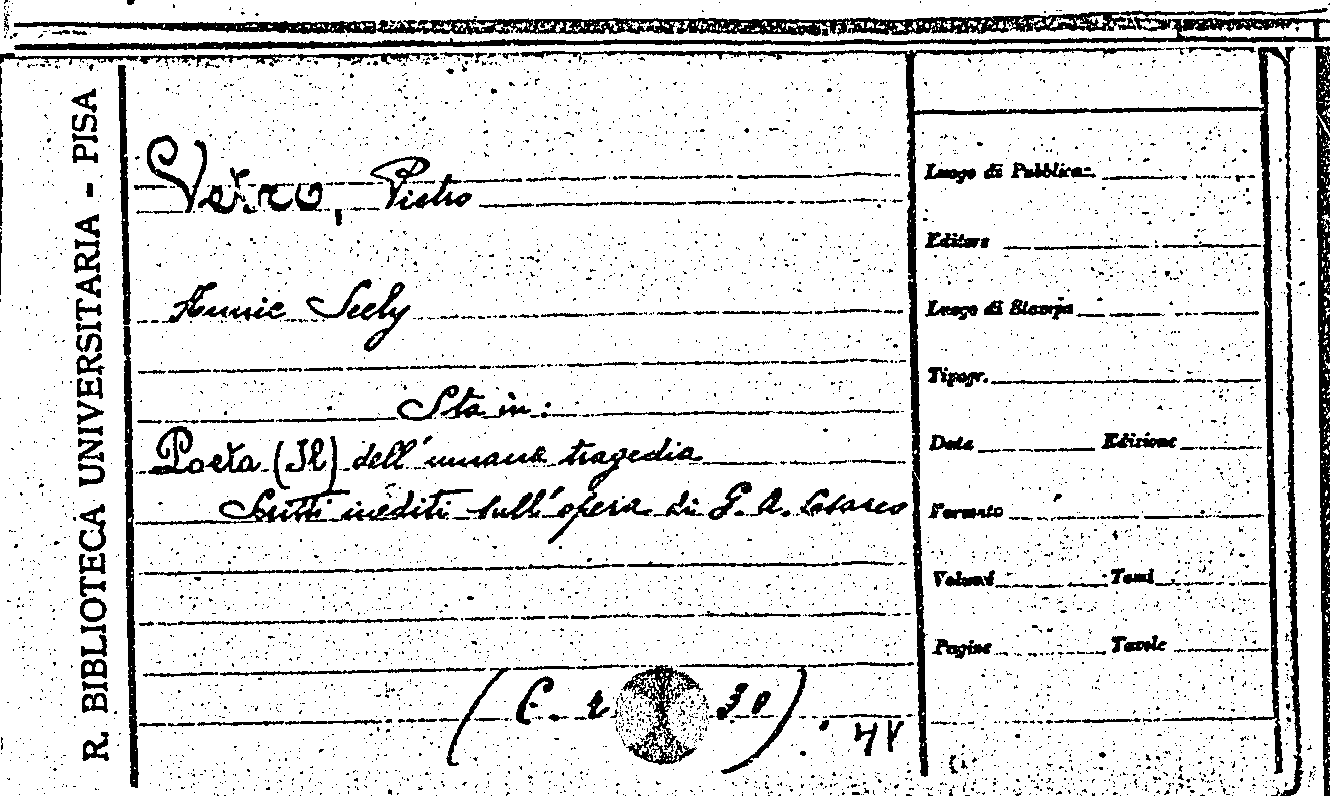 R. BIBLIOTECA UNIVERSITARIA - PISA
Pietro
Annie Seely
Sta in:
Poeta (Il) dell'umana tragedia
Scritti inediti sull'opera di G. A. Cesareo
(E. 2 30)
Luogo di Pubblicaz.
Editore
Luogo di Stampa
Tipogr.
Data Edizione
Formato
Volumi Tomi
Pagine Tavole